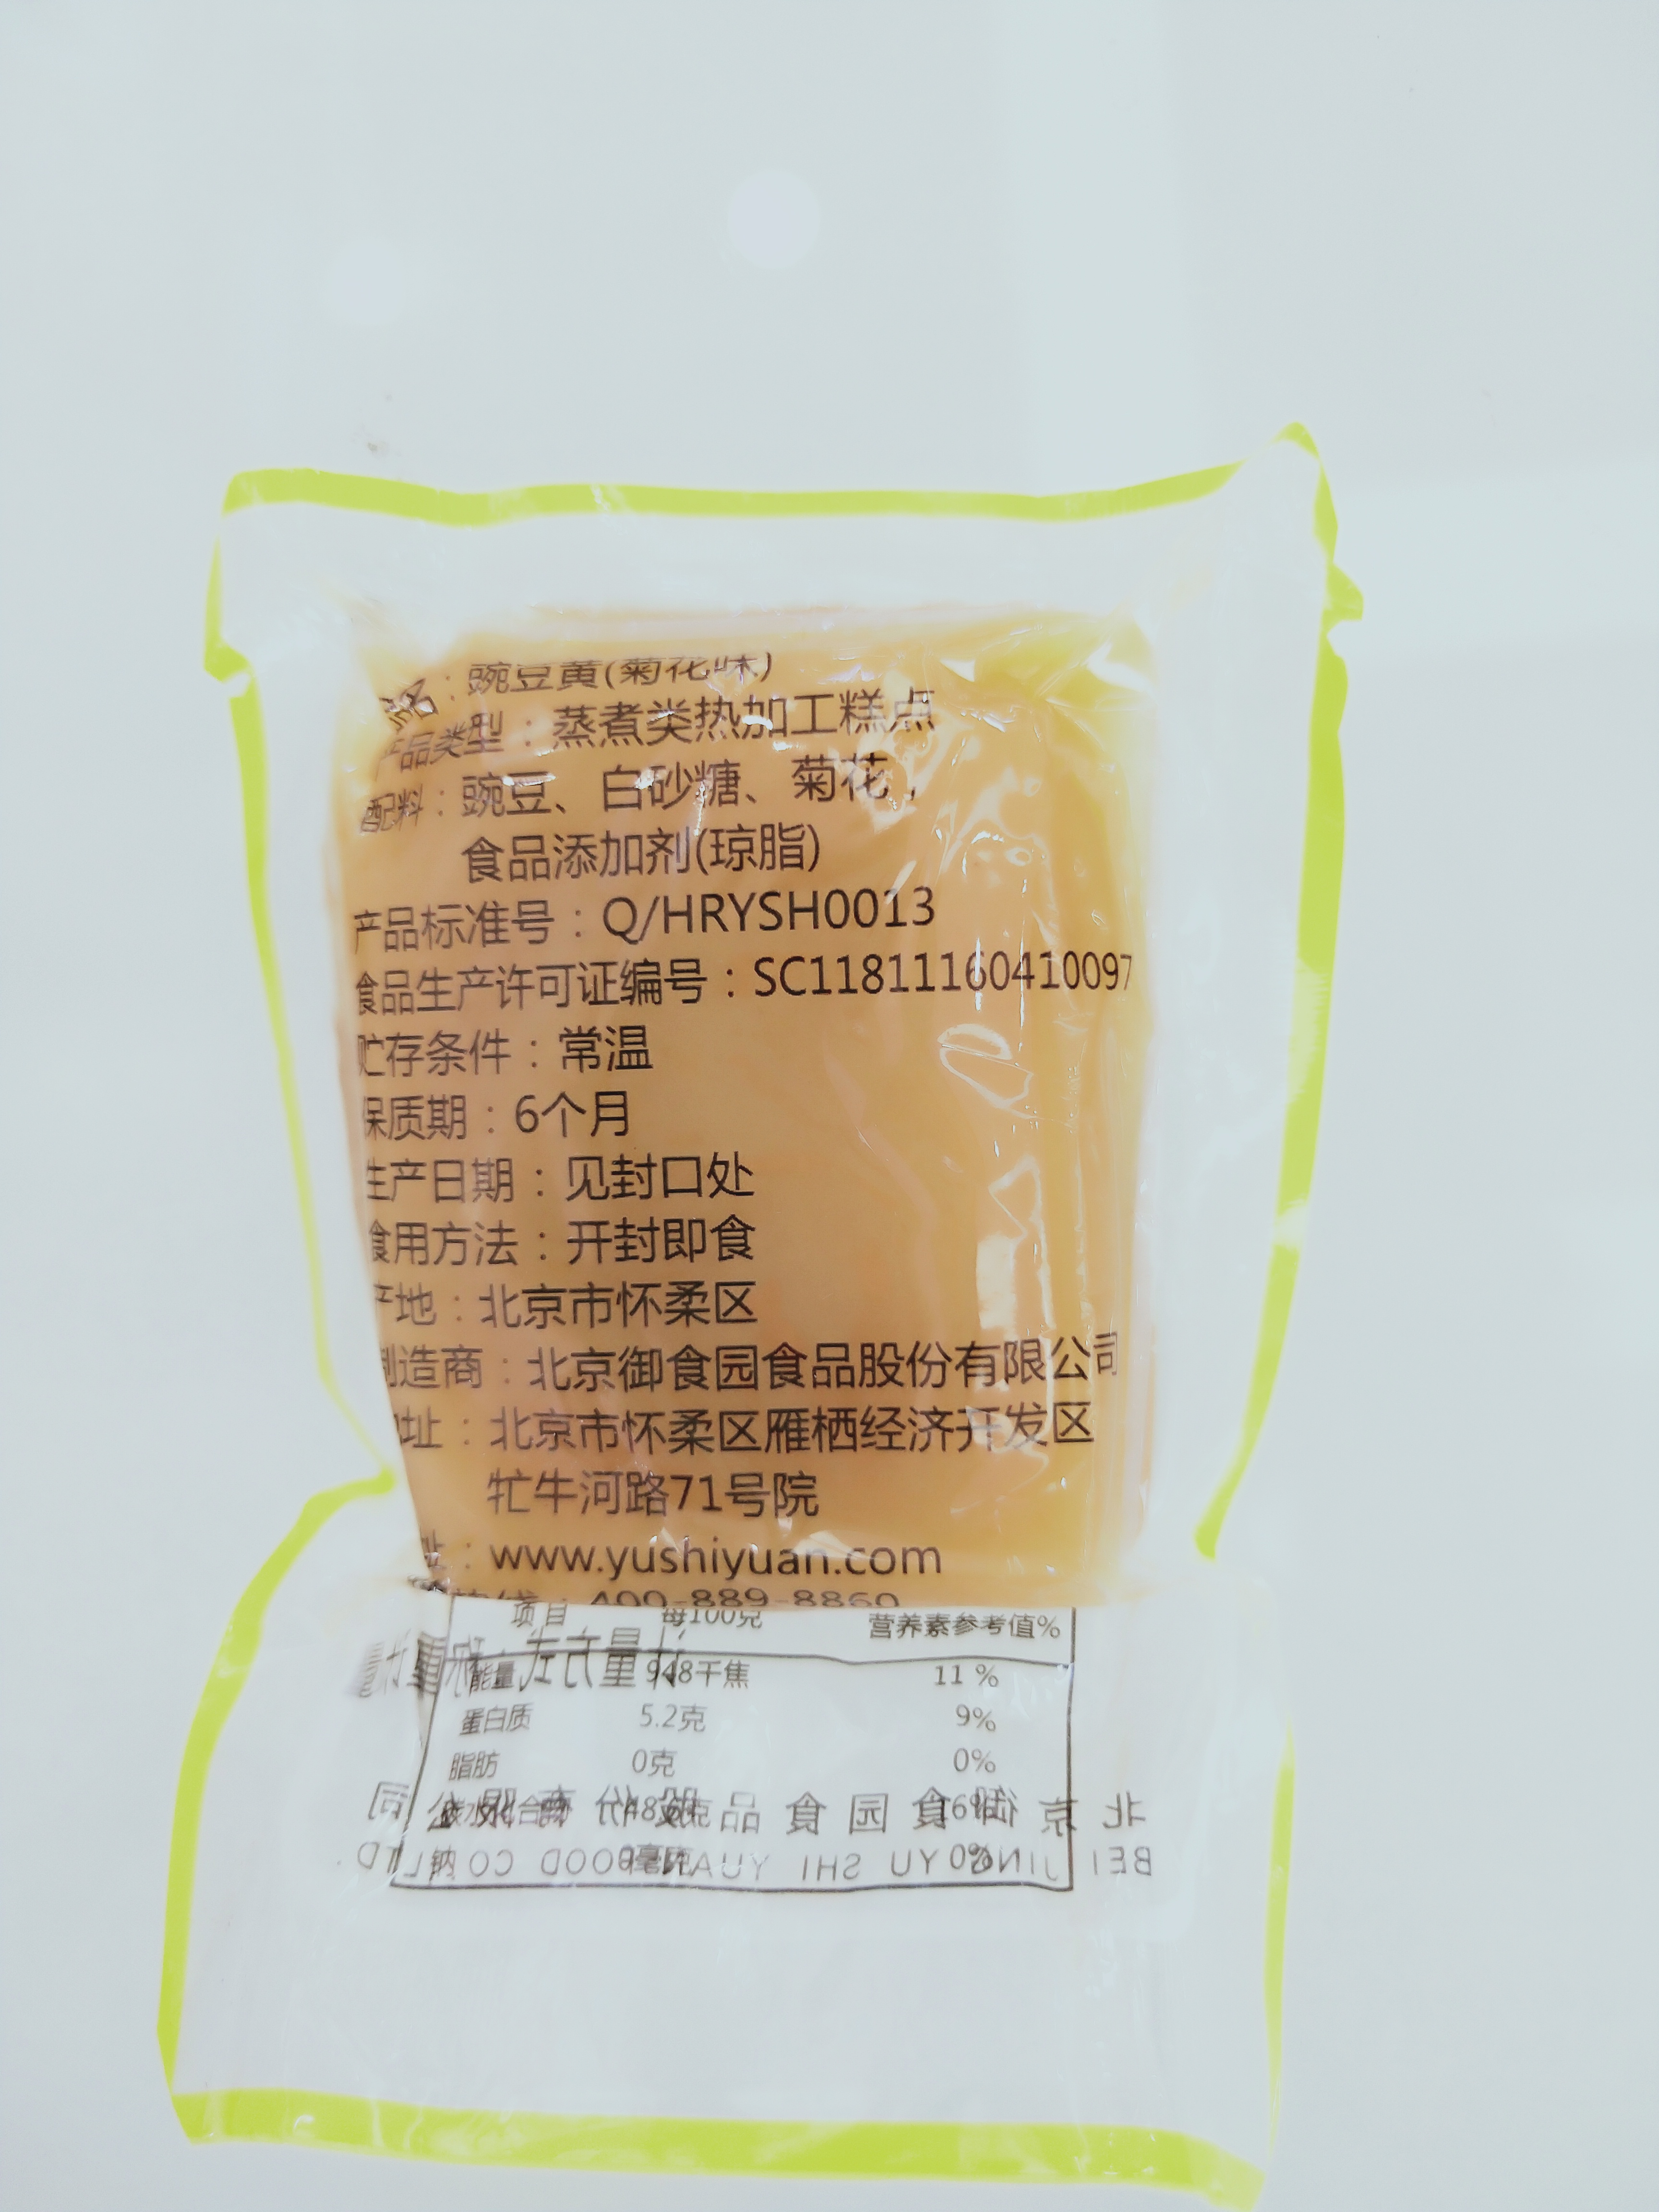 品名：豌豆黄(菊花味)
产品类型：蒸煮类热加工糕点
配料：豌豆、白砂糖、菊花，
食品添加剂(琼脂)
产品标准号：Q/HRYSH0013
食品生产许可证编号：SC11811160410097
贮存条件：常温
保质期：6个月
生产日期：见封口处
食用方法：开封即食
产地：北京市怀柔区
制造商：北京御食园食品股份有限公司
地址：北京市怀柔区雁栖经济开发区
牤牛河路71号院
址：www.yushiyuan.com
热线：400-889-8860
项目 每100克 营养素参考值%
能量 948千焦 11 %
蛋白质 5.2克 9%
脂肪 0克 0%
碳水化合物
钠 0毫克 0%
北京御食园食品股份有限公司
BEI JING YU SHI YUAN FOOD CO LTD.